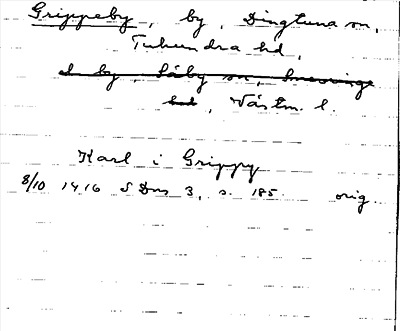 Grippeby, by, Dingtuna sn,
Tuhundra hd,
by, Säby sn, Snevringe
hd, Västm. l.
Karl i Grippy
8/10 1416 SDns 3, s. 185. orig.